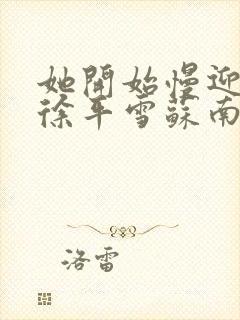 她開始慢迎
徐平雪蘇南
洛雷